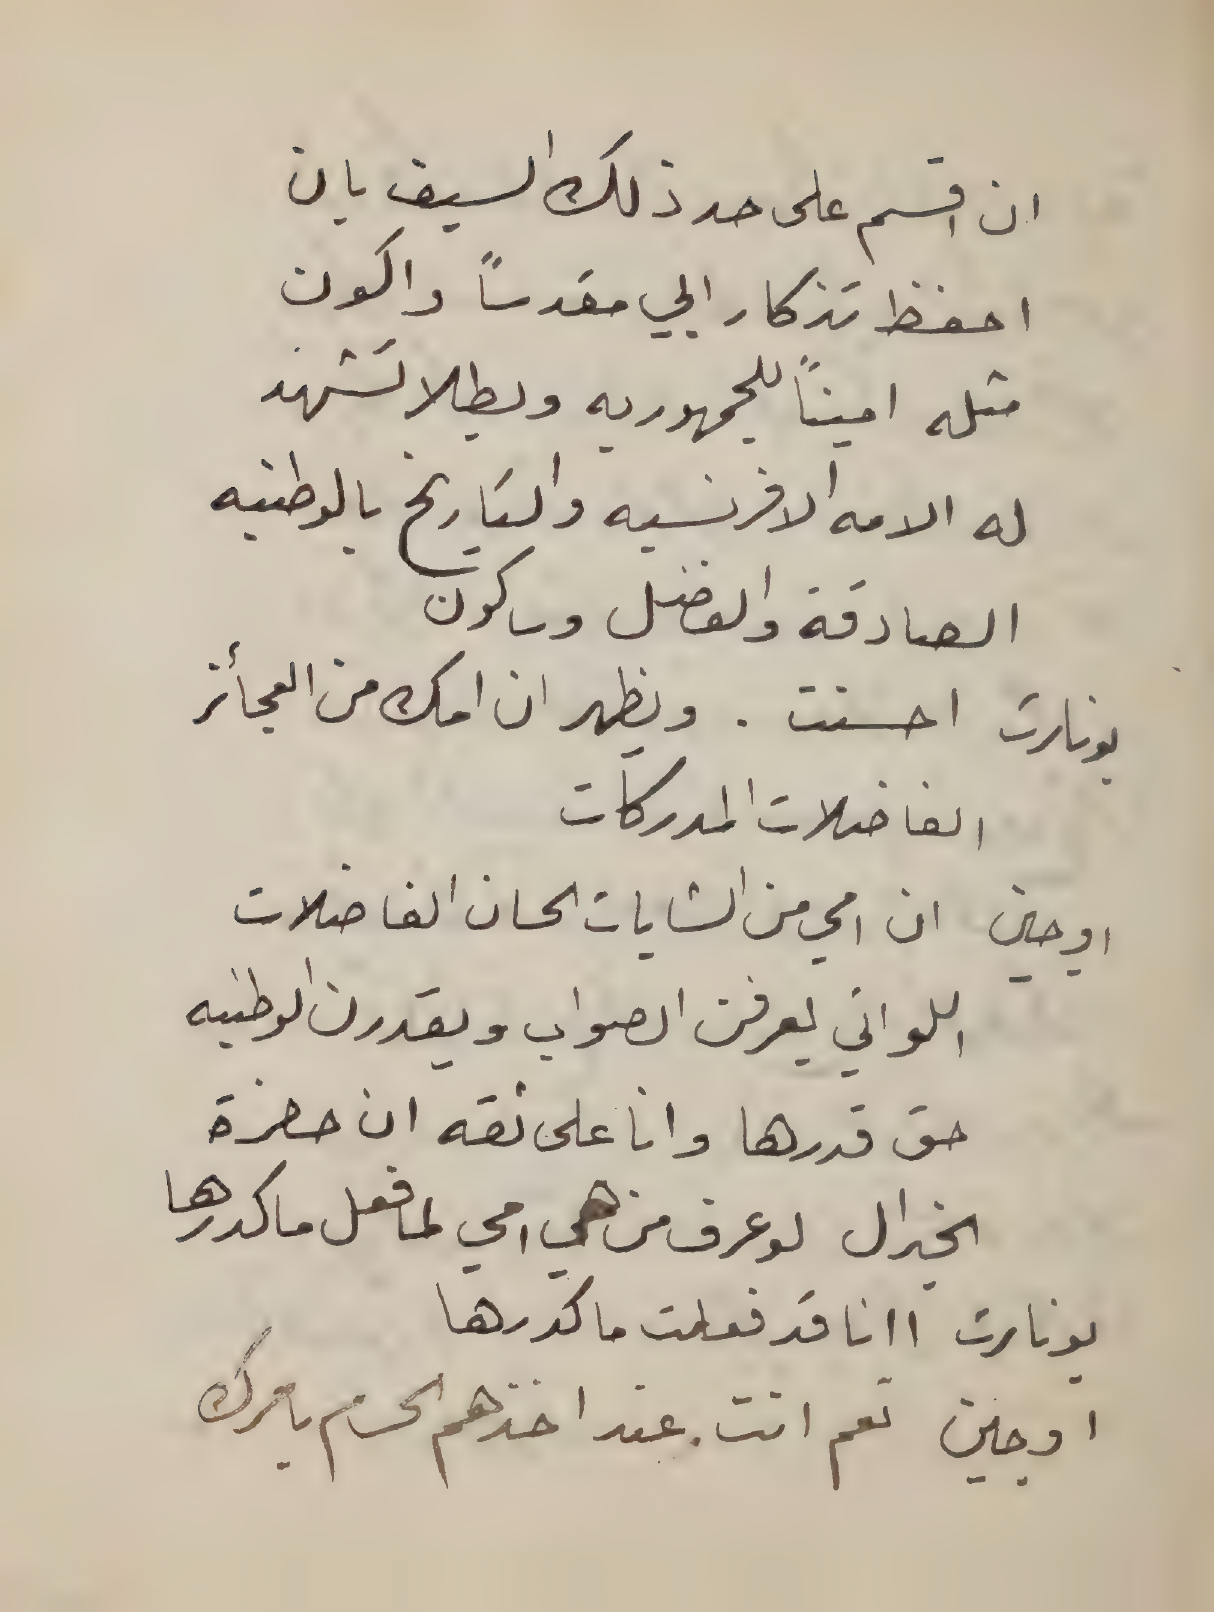 ان اقسم على حد ذلك السيف بان
احفظ تذكار ابي مقدساً واكون
مثله اميناً للجمهوريه وبطلا تشهد
له الامه الافرنسيه والتاريخ بالوطنيه
الصادقة والفضل وساكون
بونابرت احسنت . ويظهر ان امك من العجائز
الفاضلات المدركات
اوجين ان امي من الشابات الحسان الفاضلات
اللواتي يعرفن الصواب ويقدرن الوطنيه
حق قدرها وانا على ثقه ان حضرة
الجنرال لو عرف من هي امي لما فعل ما كدرها
بونابرت اانا قد فعلت ما كدرها
اوجين نعم انت . عند اخذهم الحسام بامرك